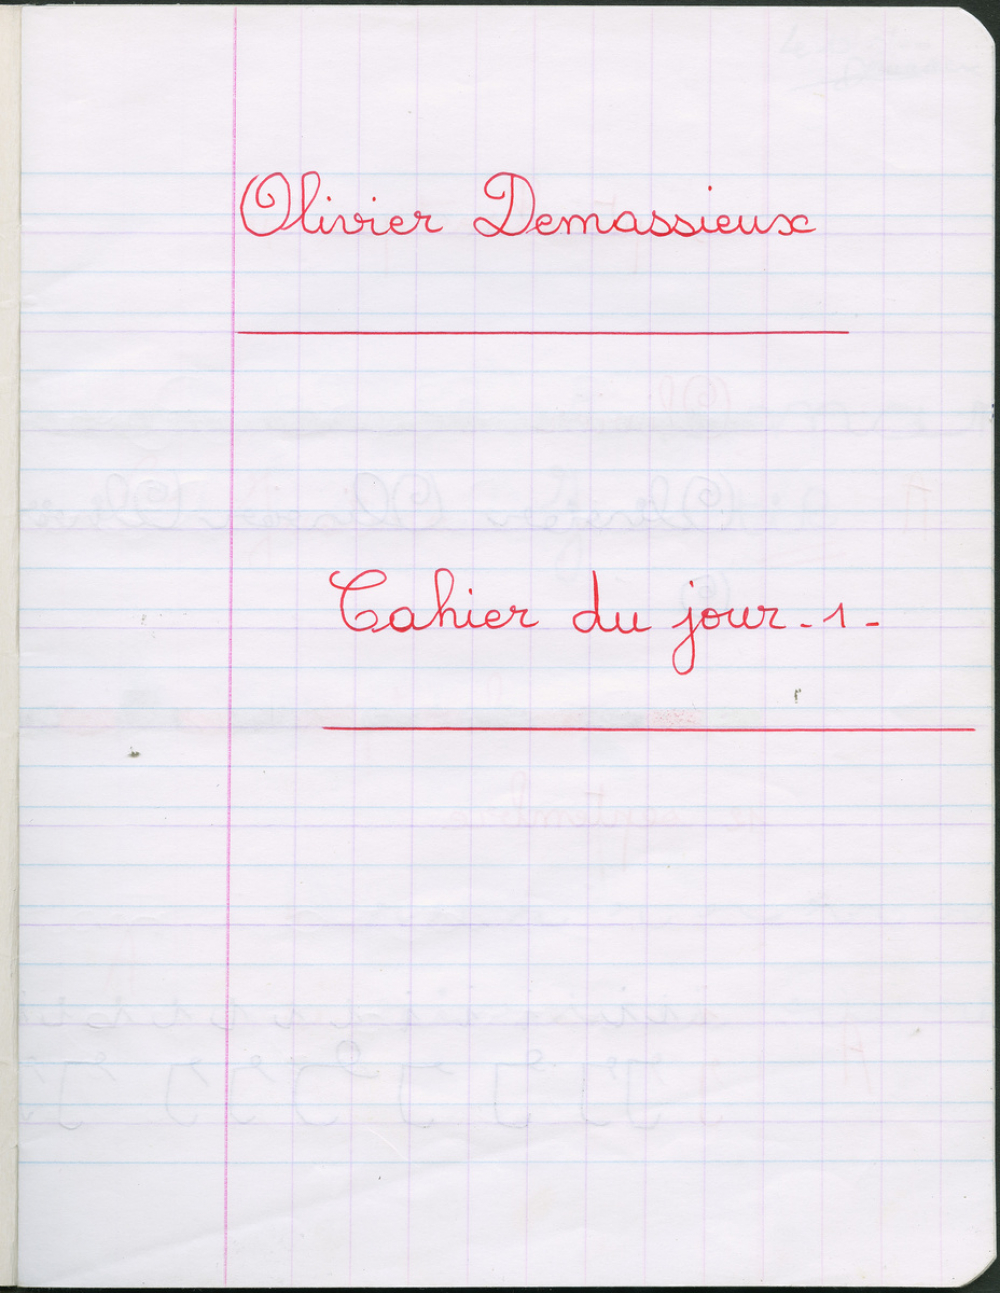 Olivier Demassieux
Cahier du jour - 1 -